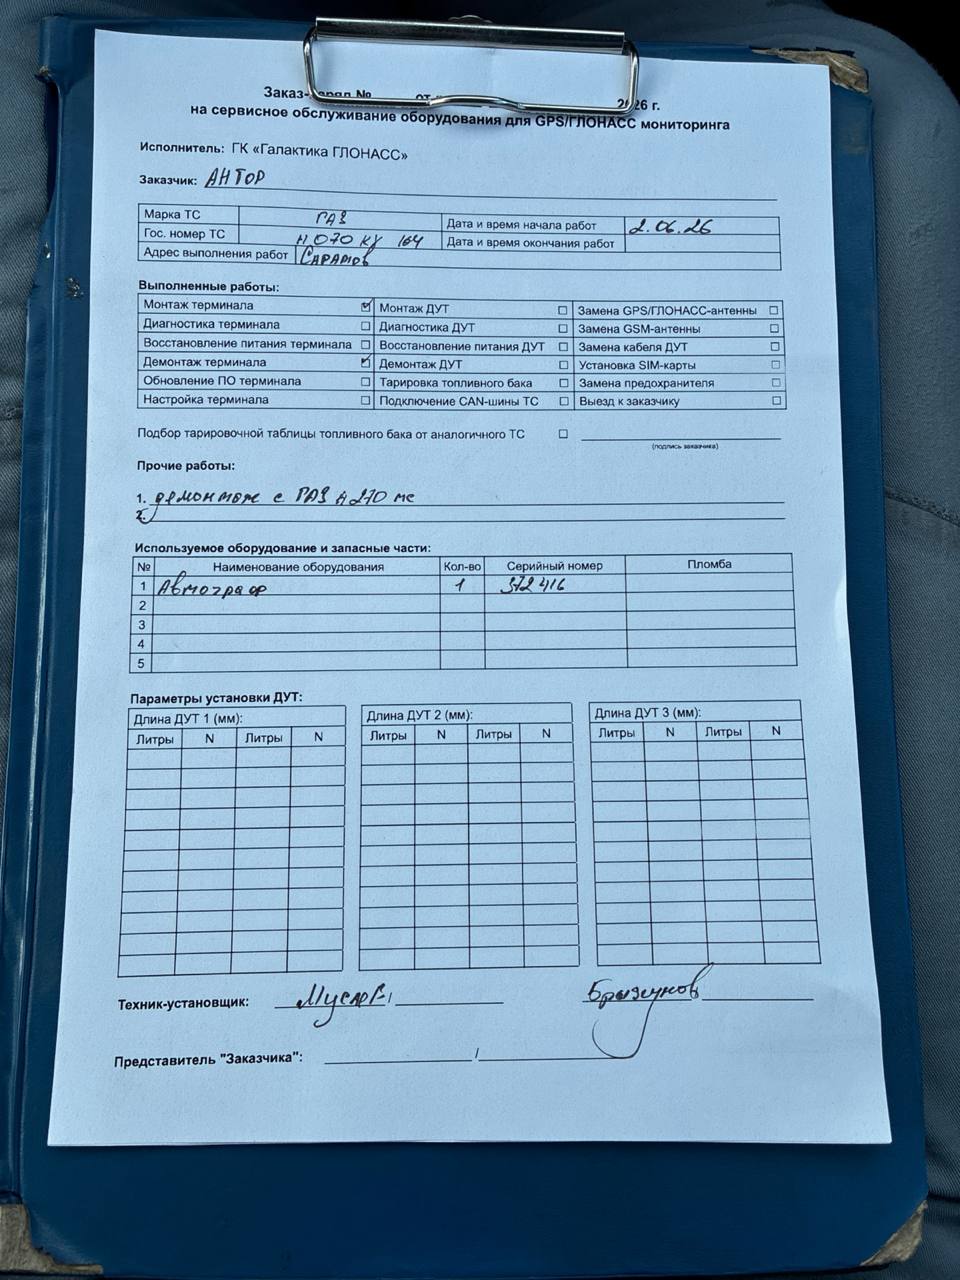 Заказ-наряд № от « 2026 г.
на сервисное обслуживание оборудования для GPS/ГЛОНАСС мониторинга
Исполнитель: ГК «Галактика ГЛОНАСС»
Заказчик: АНТОР
Марка ТС ГАЗ Дата и время начала работ 2.06.26
Гос. номер ТС Н 070 КУ 164 Дата и время окончания работ
Адрес выполнения работ Саратов
Выполненные работы:
Монтаж терминала ☑ Монтаж ДУТ ☐ Замена GPS/ГЛОНАСС-антенны ☐
Диагностика терминала ☐ Диагностика ДУТ ☐ Замена GSM-антенны ☐
Восстановление питания терминала ☐ Восстановление питания ДУТ ☐ Замена кабеля ДУТ ☐
Демонтаж терминала ☑ Демонтаж ДУТ ☐ Установка SIM-карты ☐
Обновление ПО терминала ☐ Тарировка топливного бака ☐ Замена предохранителя ☐
Настройка терминала ☐ Подключение CAN-шины ТС ☐ Выезд к заказчику ☐
Подбор тарировочной таблицы топливного бака от аналогичного ТС ☐
(подпись заказчика)
Прочие работы:
1. демонтаж с ГАЗ А 270 мс
2.
Используемое оборудование и запасные части:
№ Наименование оборудования Кол-во Серийный номер Пломба
1 Автограф 1 372416
2
3
4
5
Параметры установки ДУТ:
Длина ДУТ 1 (мм): Длина ДУТ 2 (мм): Длина ДУТ 3 (мм):
Литры N Литры N Литры N Литры N Литры N Литры N
Техник-установщик:
Представитель "Заказчика": /